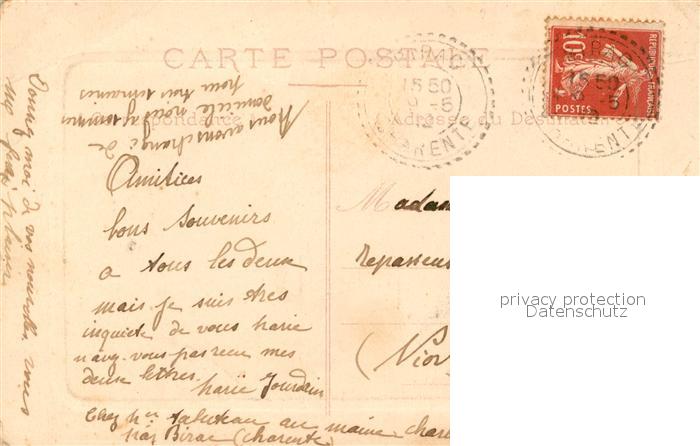 CARTE POSTALE
Correspondance
Adresse du Destinataire
REPUBLIQUE FRANÇAISE
10
POSTES
15 50
-5
CHARENTE
15 50
-5
CHARENTE
Nous avons changé de
domicile nous y sommes
pour trois semaines
Amitiées
bons souvenirs
a tous les deux
mais je suis tres
inquiete de vous Marie
n'avez vous pas recue mes
deux lettres
Marie Jourdain
Chez Mr Tabuteau au maine
Birac (Charente
Donnez moi de vos nouvelles vous
me ferez plaisir
Madam
Repasseus
(Nior
privacy protection
Datenschutz